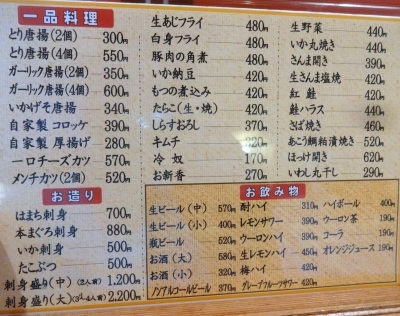 一品料理
とり唐揚(2個) 300円
とり唐揚(4個) 550円
ガーリック唐揚(2個) 350円
ガーリック唐揚(4個) 600円
いかげそ唐揚 340円
自家製 コロッケ 390円
自家製 厚揚げ 280円
一口チーズカツ 570円
メンチカツ(2個) 520円
お造り
はまち刺身 700円
本まぐろ刺身 880円
いか刺身 500円
たこぶつ 500円
刺身盛り(中)(2人前) 1.200円
刺身盛り(大)(3〜4人前) 2.200円
生あじフライ 480円
白身フライ 480円
豚肉の角煮 480円
いか納豆 420円
もつの煮込み 420円
たらこ(生・焼) 470円
しらすおろし 370円
キムチ
冷奴 170円
お新香 270円
生野菜 440円
いか丸焼き 440円
さんま開き 390円
生さんま塩焼 420円
紅鮭 420円
鮭ハラス 440円
さば焼き 460円
あこう鯛粕漬焼き 520円
ほっけ開き 620円
いわし丸干し 290円
お飲み物
生ビール(中) 570円
生ビール(小) 400円
瓶ビール 570円
お酒(大) 580円
お酒(小) 320円
ノンアルコールビール 370円
酎ハイ 310円
レモンサワー 390円
ウーロンハイ 390円
生レモンハイ 450円
梅ハイ 420円
グレープフルーツサワー 420円
ハイボール 400円
ウーロン茶 190円
コーラ 190円
オレンジジュース 190円